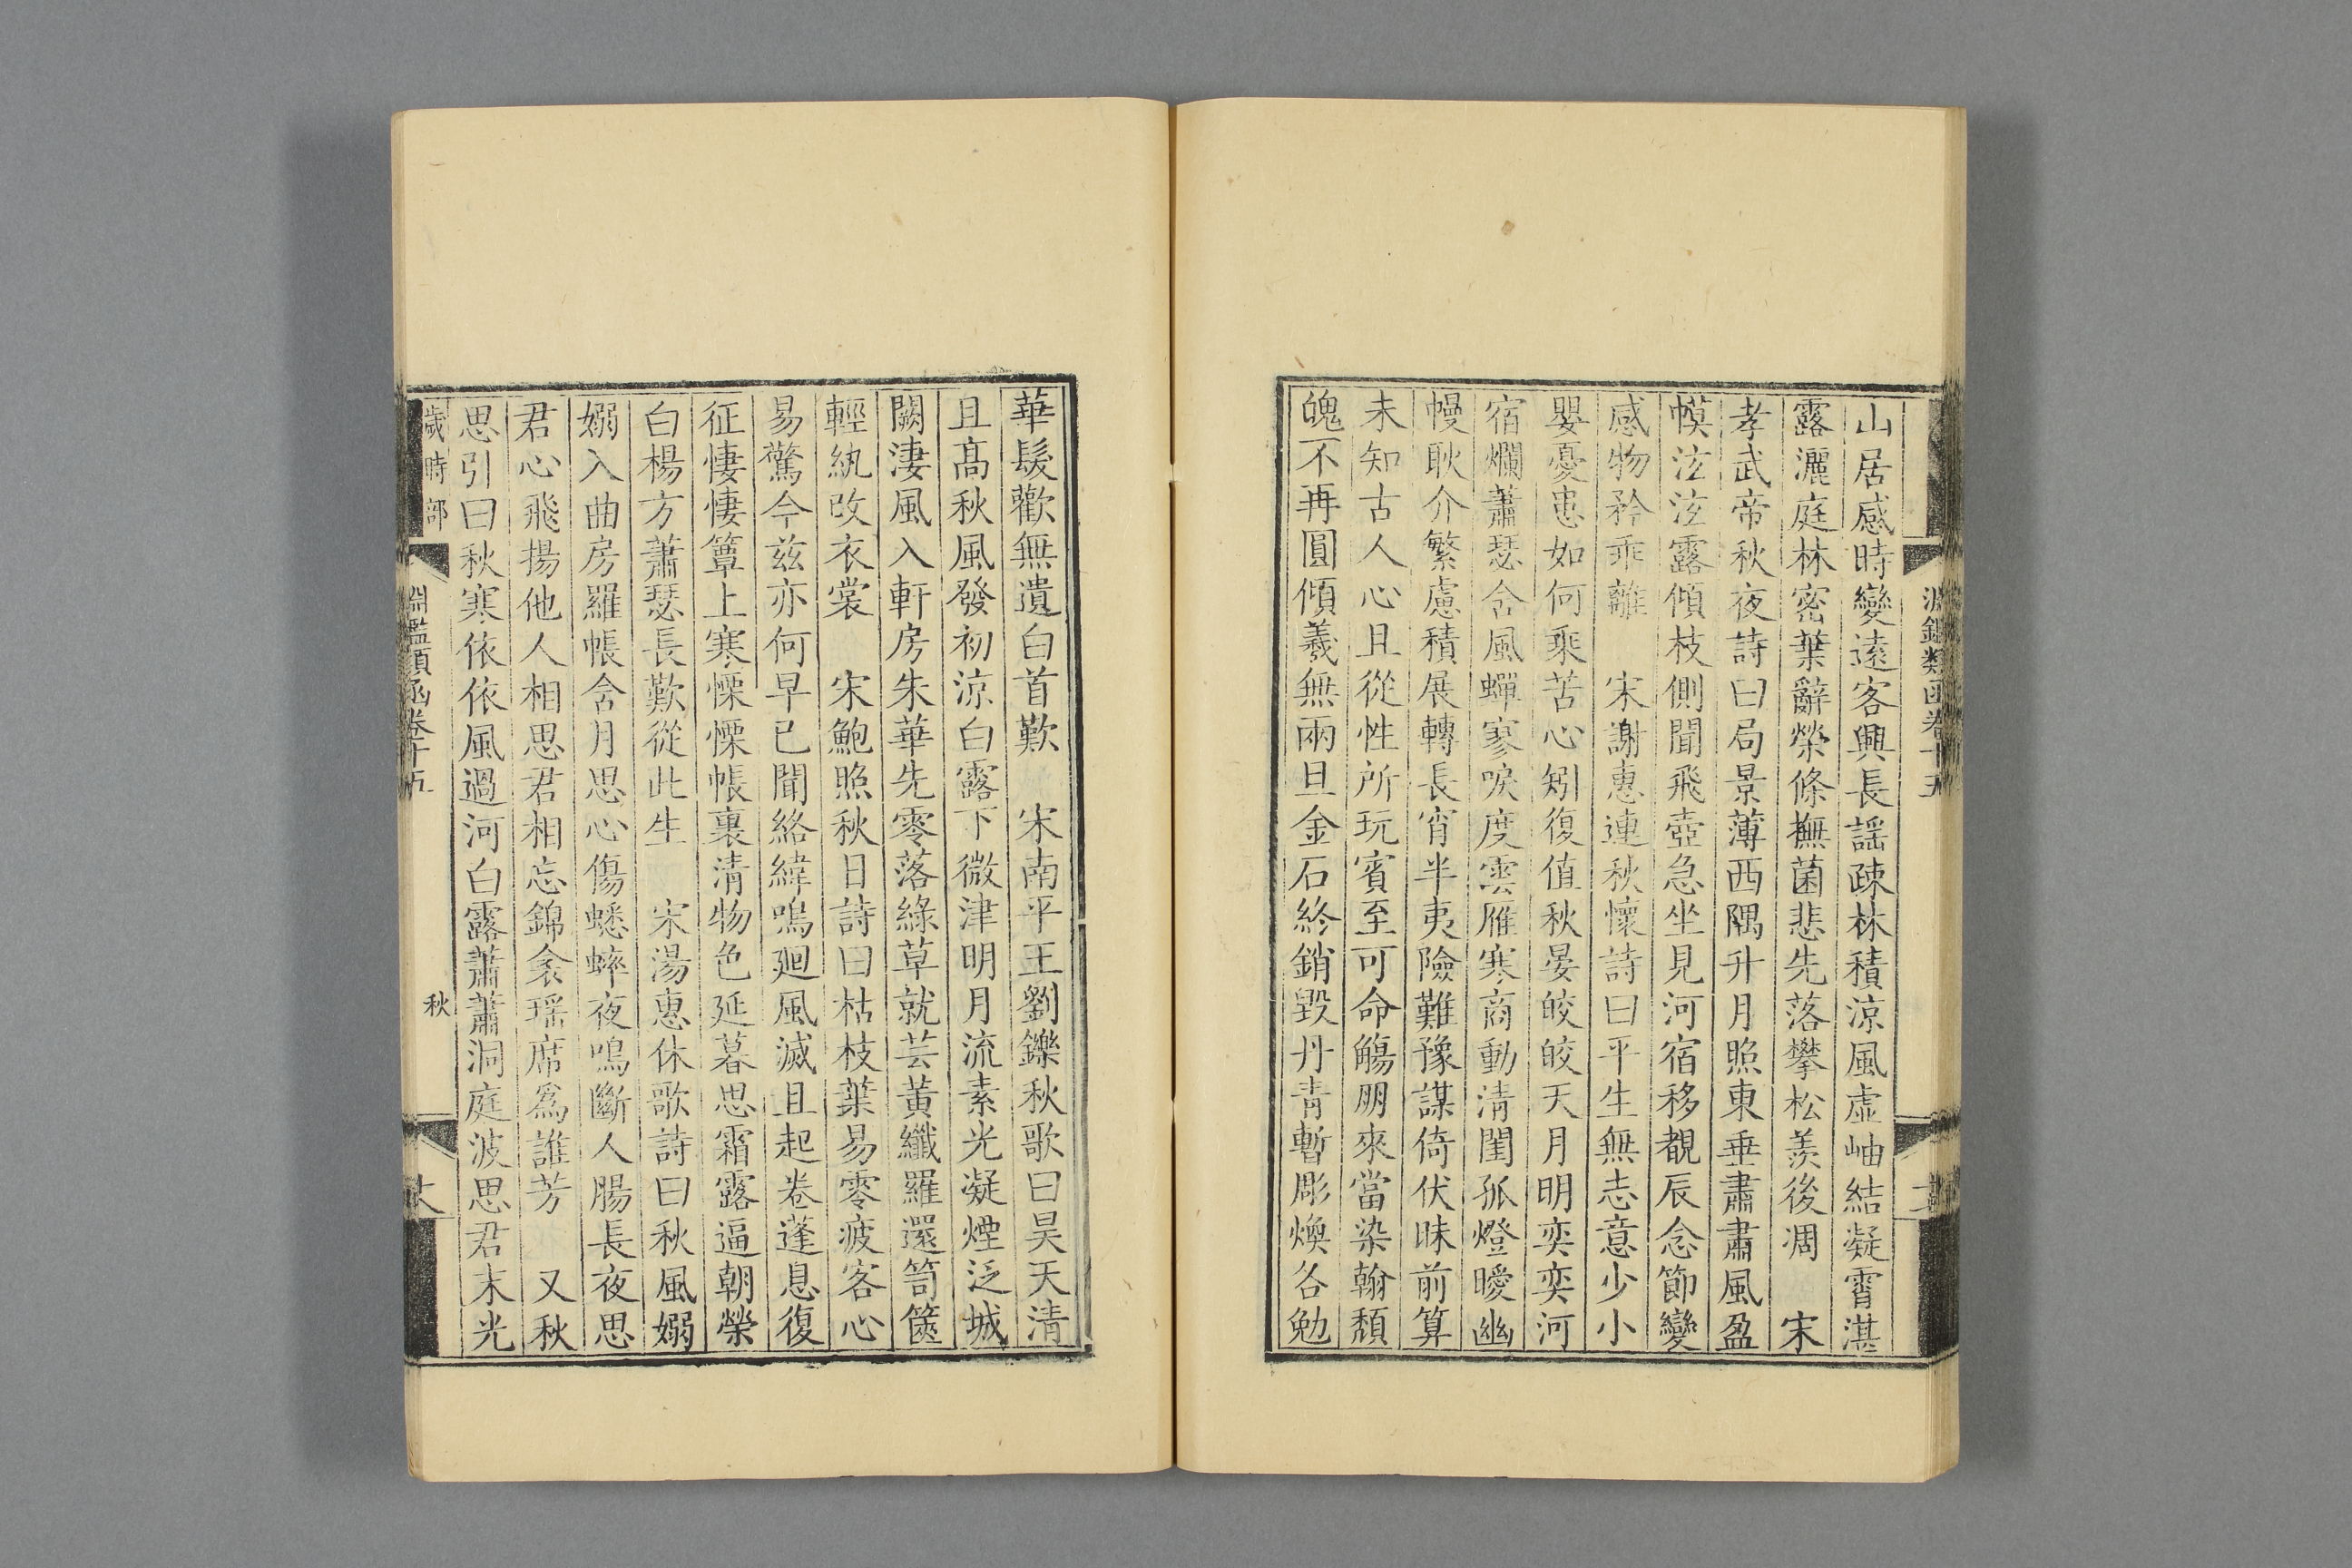 淵鑑類函卷十五
山居感時變遠客興長謡疎林積涼風虛岫結凝霄湛
露灑庭林密葉辭榮條撫菌悲先落攀松羨後凋　宋
孝武帝秋夜詩曰局景薄西隅升月照東垂肅肅風盈
幙泫泫露傾枝側聞飛壺急坐見河宿移覩辰念節變
感物矜乖離　宋謝惠連秋懷詩曰平生無志意少小
嬰憂患如何乘苦心矧復值秋晏皎皎天月明奕奕河
宿爛蕭瑟含風蟬寥唳度雲雁寒商動清閨孤燈曖幽
幔耿介繁慮積展轉長宵半夷險難豫謀倚伏昧前算
未知古人心且從性所玩賓至可命觴朋來當染翰頽
魄不再圓傾羲無兩旦金石終銷毀丹青暫彫煥各勉
華髮歡無遺白首歎　宋南平王劉鑠秋歌曰昊天清
且髙秋風發初涼白露下微津明月流素光凝煙泛城
闕淒風入軒房朱華先零落綠草就芸黃纖羅還笥篋
輕紈改衣裳　宋鮑照秋日詩曰枯枝葉易零疲客心
易驚今兹亦何早已聞絡緯鳴廻風滅且起卷蓬息復
征悽悽簟上寒慄慄帳裏清物色延暮思霜露逼朝榮
白楊方蕭瑟長歎從此生　宋湯惠休歌詩曰秋風嫋
嫋入曲房羅帳含月思心傷蟋蟀夜鳴斷人腸長夜思
君心飛揚他人相思君相忘錦衾瑶席爲誰芳　又秋
思引曰秋寒依依風過河白露蕭蕭洞庭波思君末光
歲時部　淵鑑類函卷十五　秋